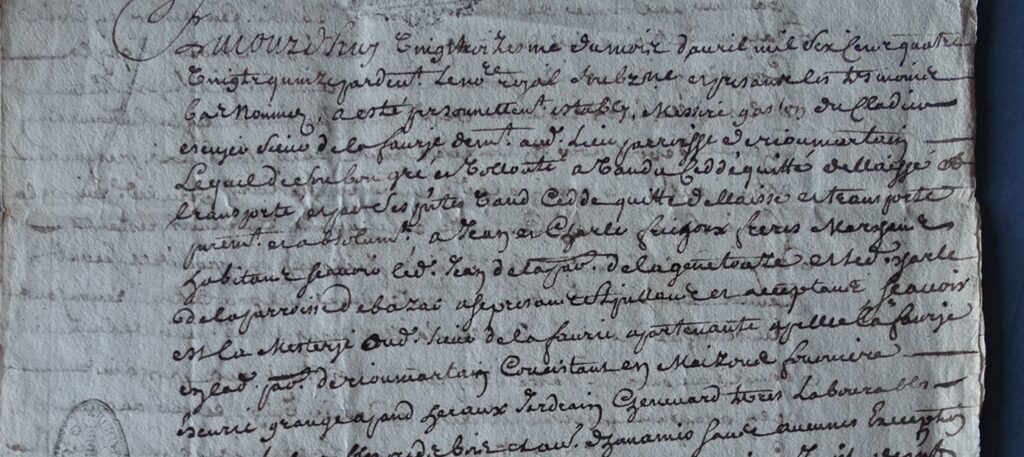 Aujourd'huy Vingt troiziesme du mois d'avril mil six cens quatre
Vingts quinze pardevt. Le nore. royal soubzne. et presants les tesmoins
bas Nommez, a esté personnellemt. estably, Messire gaston du Cladier
escuyer sieur de la faurje demt. aud. Lieu parroisse de rioumartain
Lequel de son bon gre et Vollonté a Vandu Ceddé quitté dellaisse et
transporte et par Ses pntes Vand Cedde quitte dellaisse et transporte
puremt. et absolumt. a Jean et Charle freres
habitans scavoir led. Jean de la par. de la genetouze et led. Charle
de la parroisse de bazac a ce presans stipullans et acceptans scavoir
est la Mesterje dud. sieur de la faurie apartenante apellée la faurje
en lad. par. de rioumartain Consistant en Maizons fourniere
escurie grange Jardrain Chenevard terres Labourables
de bois et au. sans aucunes Exception